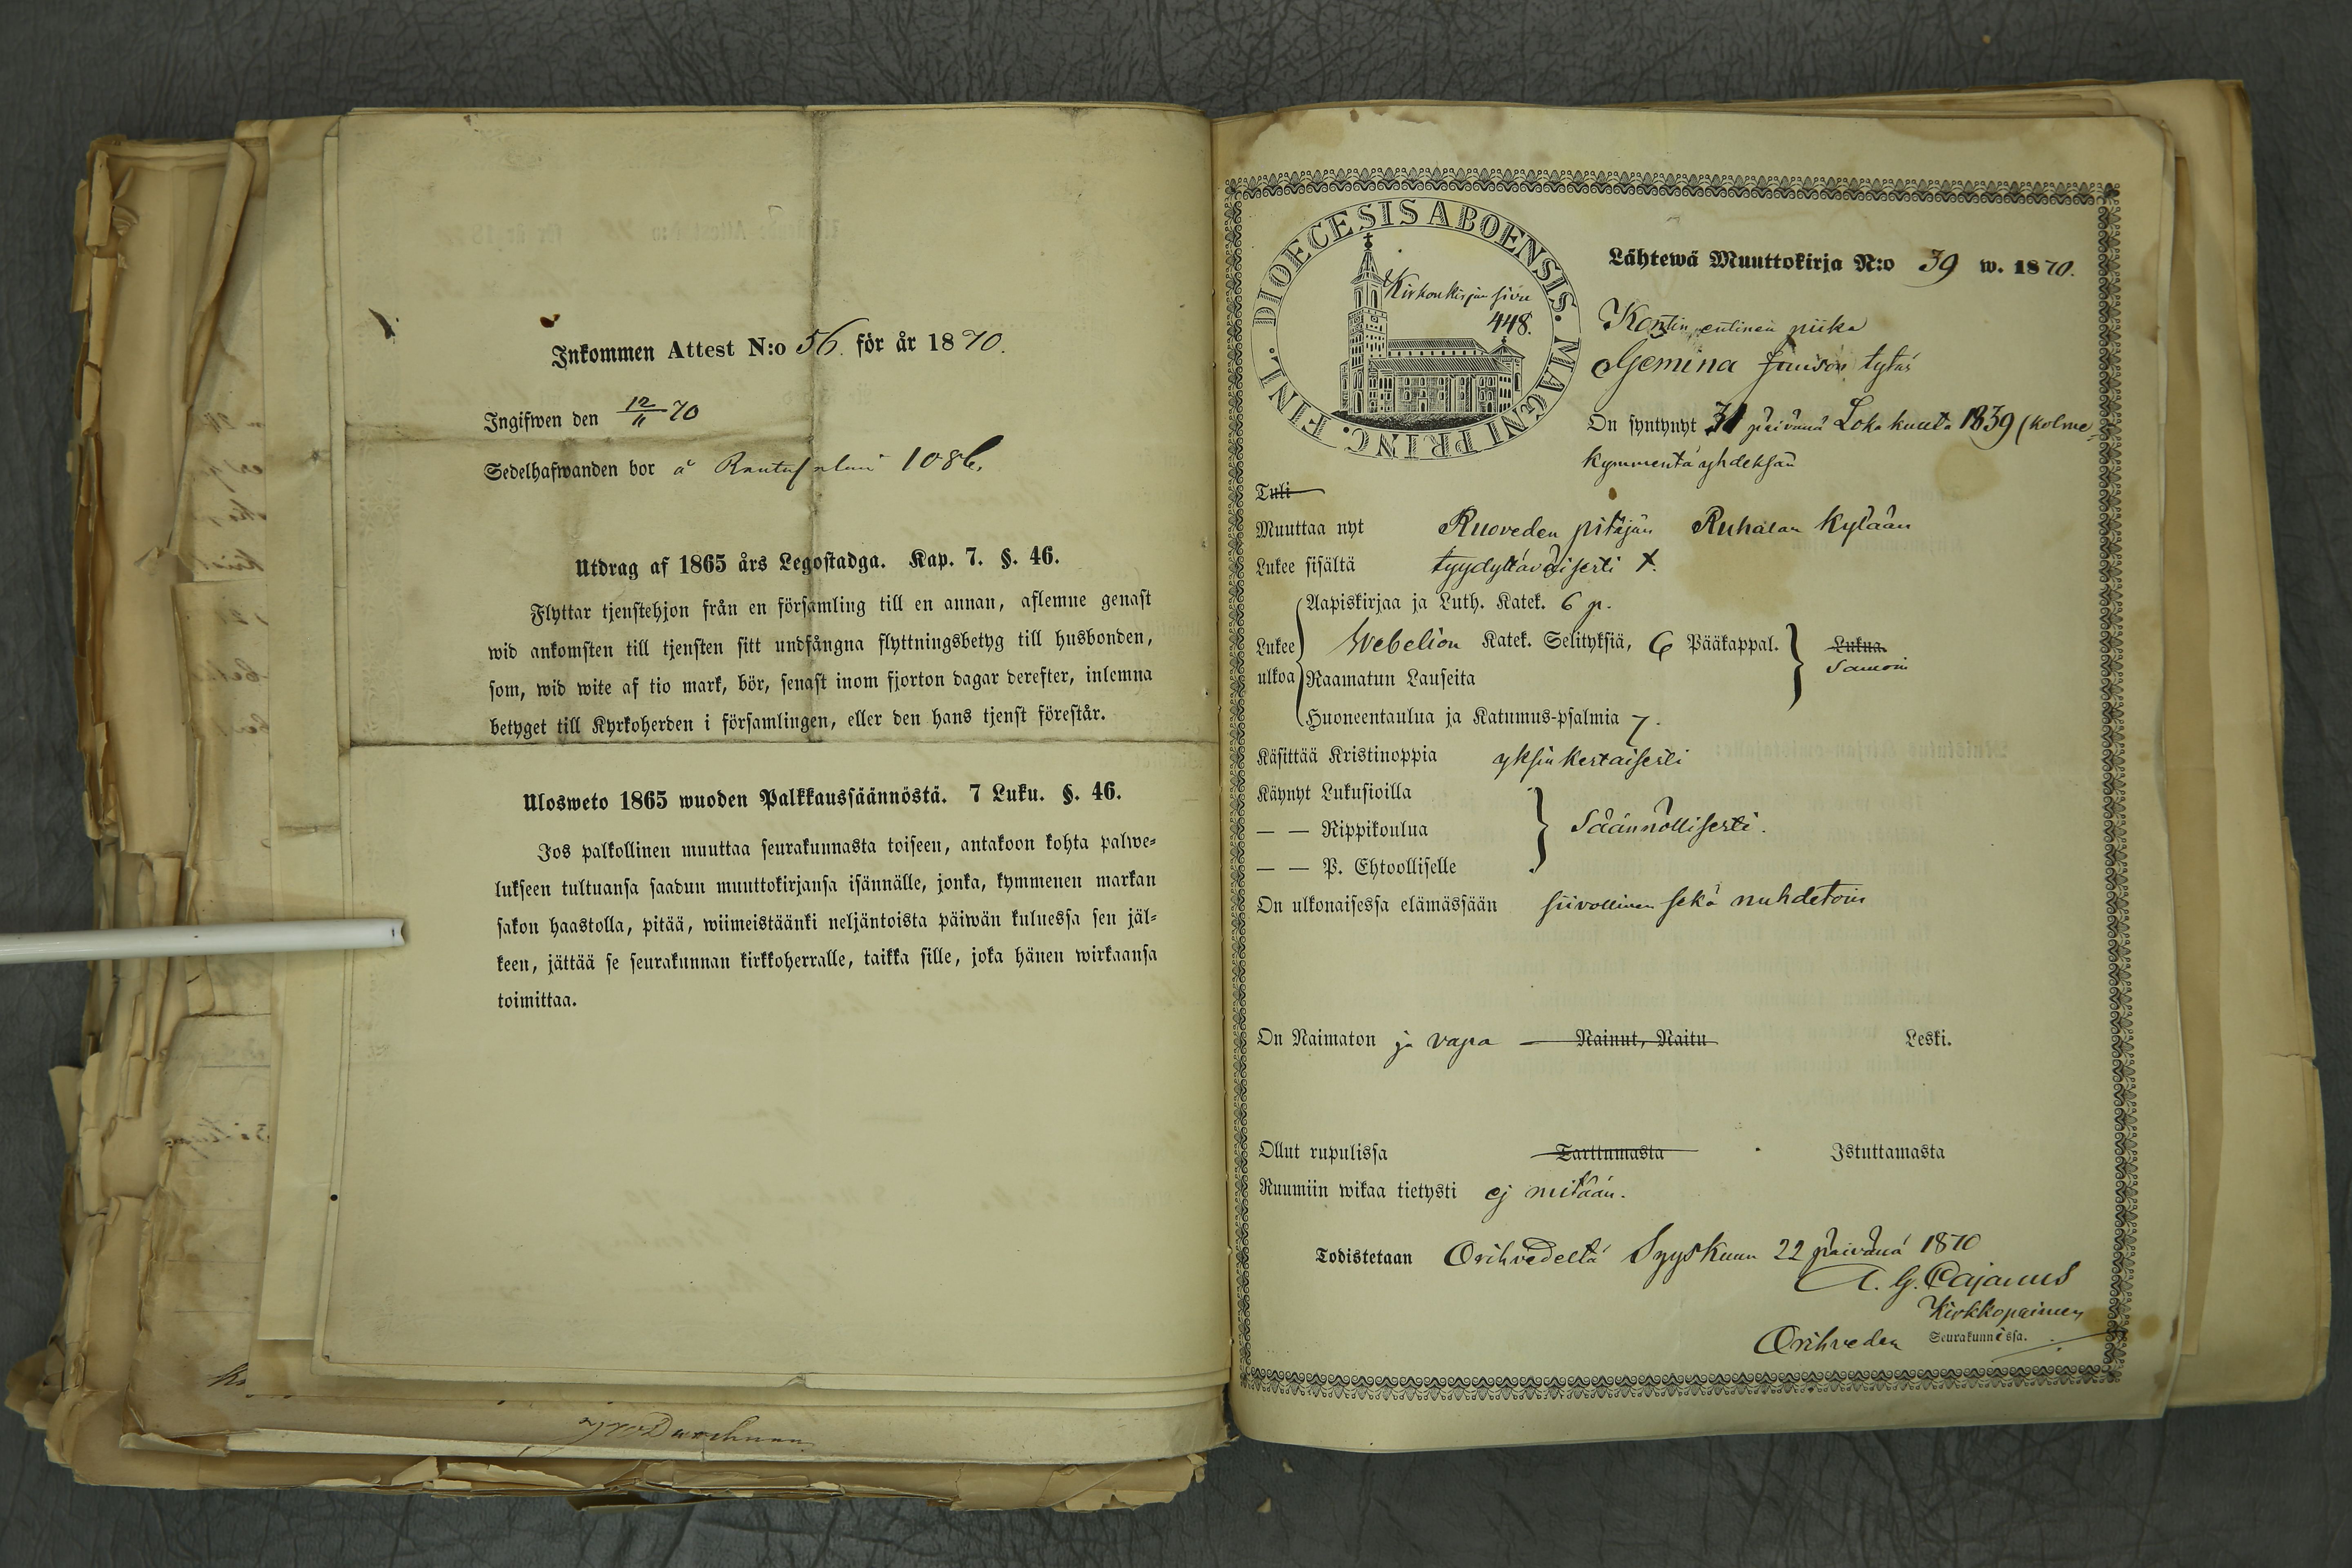 Inkommen Attest N:o 56. för år 1870.
Ingifwen den 12/11 70
Sedelhafwanden bor å 1086.
Utdrag af 1865 års Legostadga. Kap. 7. §. 46.
Flyttar tjenstehjon från en församling till en annan, aflemne genast
wid ankomsten till tjensten sitt undfångna flyttningsbetyg till husbonden,
som, wid wite af tio mark, bör, senast inom fjorton dagar derefter, inlemna
betyget till Kyrkoherden i församlingen, eller den hans tjenst förestår.
Ulosweto 1865 wuoden Palkkaussäännöstä. 7 Luku. §. 46.
Jos palkollinen muuttaa seurakunnasta toiseen, antakoon kohta palwe=
lukseen tultuansa saadun muuttokirjansa isännälle, jonka, kymmenen markan
sakon haastolla, pitää, wiimeistäänki neljäntoista päiwän kuluessa sen jäl=
keen, jättää se seurakunnan kirkkoherralle, taikka sille, joka hänen wirkaansa
toimittaa.
DIOECESIS ABOENSIS. MAGNI PRINC. FINL.
Kirkonkirjan sivu
448.
Lähtewä Muuttokirja N:o 39 w. 1870.
entinen piika
tytär
On syntynyt 31 päivänä Lokakuuta 1839 (kolme-
kymmentä yhdeksän
Tuli
Muuttaa nyt Ruoveden pitäjän Ruhalan kylään
Lukee sisältä tyydyttäväisesti +.
Aapiskirjaa ja Luth. Katek. 6 p.
Lukee ulkoa
Webelion Katek. Selityksiä, 6 Pääkappal.
Lukua.
Samoin
Raamatun Lauseita
Huoneentaulua ja Katumus-psalmia 7.
Käsittää Kristinoppia yksinkertaisesti
Käynyt Lukusioilla
— — Rippikoulua Säännöllisesti.
— — P. Ehtoolliselle
On ulkonaisessa elämässään siivollinen sekä nuhdetoin
On Naimaton ja vapa Nainut, Naitu Leski.
Ollut rupulissa Tarttumasta Istuttamasta
Ruumiin wikaa tietysti ej mitään.
Todistetaan Orihvedeltä Syyskuun 22 päivänä 1870
A. G. Cajanus
Kirkkopaimen
Orihveden Seurakunnissa.